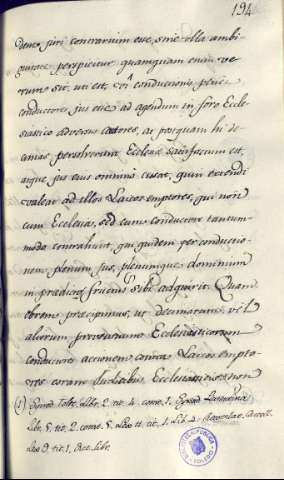 194
juri contrarium esse, sine ulla ambi-
guitate perspicitur quamquam enim ve-
rum sit ut est, vi conductionis
conductores jus esse ad agendum in foro Eccle-
siastico adversus ac postquam hi de-
cimas persolverunt Ecclesiæ satisfactum est,
atque jus eius omnino cessat, quin extendi
valeat ad illos Laicos emptores, qui non
cum Ecclesiâ, sed cum conductore tantum-
modo contrahunt, qui quidem per conductio-
nem plenum jus, plenumque dominium
in prædictos fructus sibi adquirit. Quam-
obrem præcipimus, ut decimarum vel
aliorum proventuum Ecclesiasticorum
conductores actionem contra Laicos empto-
res coram Judicibus Ecclesiasticis non
(1) Synod. Tolet. Libr. 2. tit. 4. cons. 1. Synod.
Lib. 5. tit. 2. cons. 5. tit. 4. Lib. 2.
tit. 1. Libr.